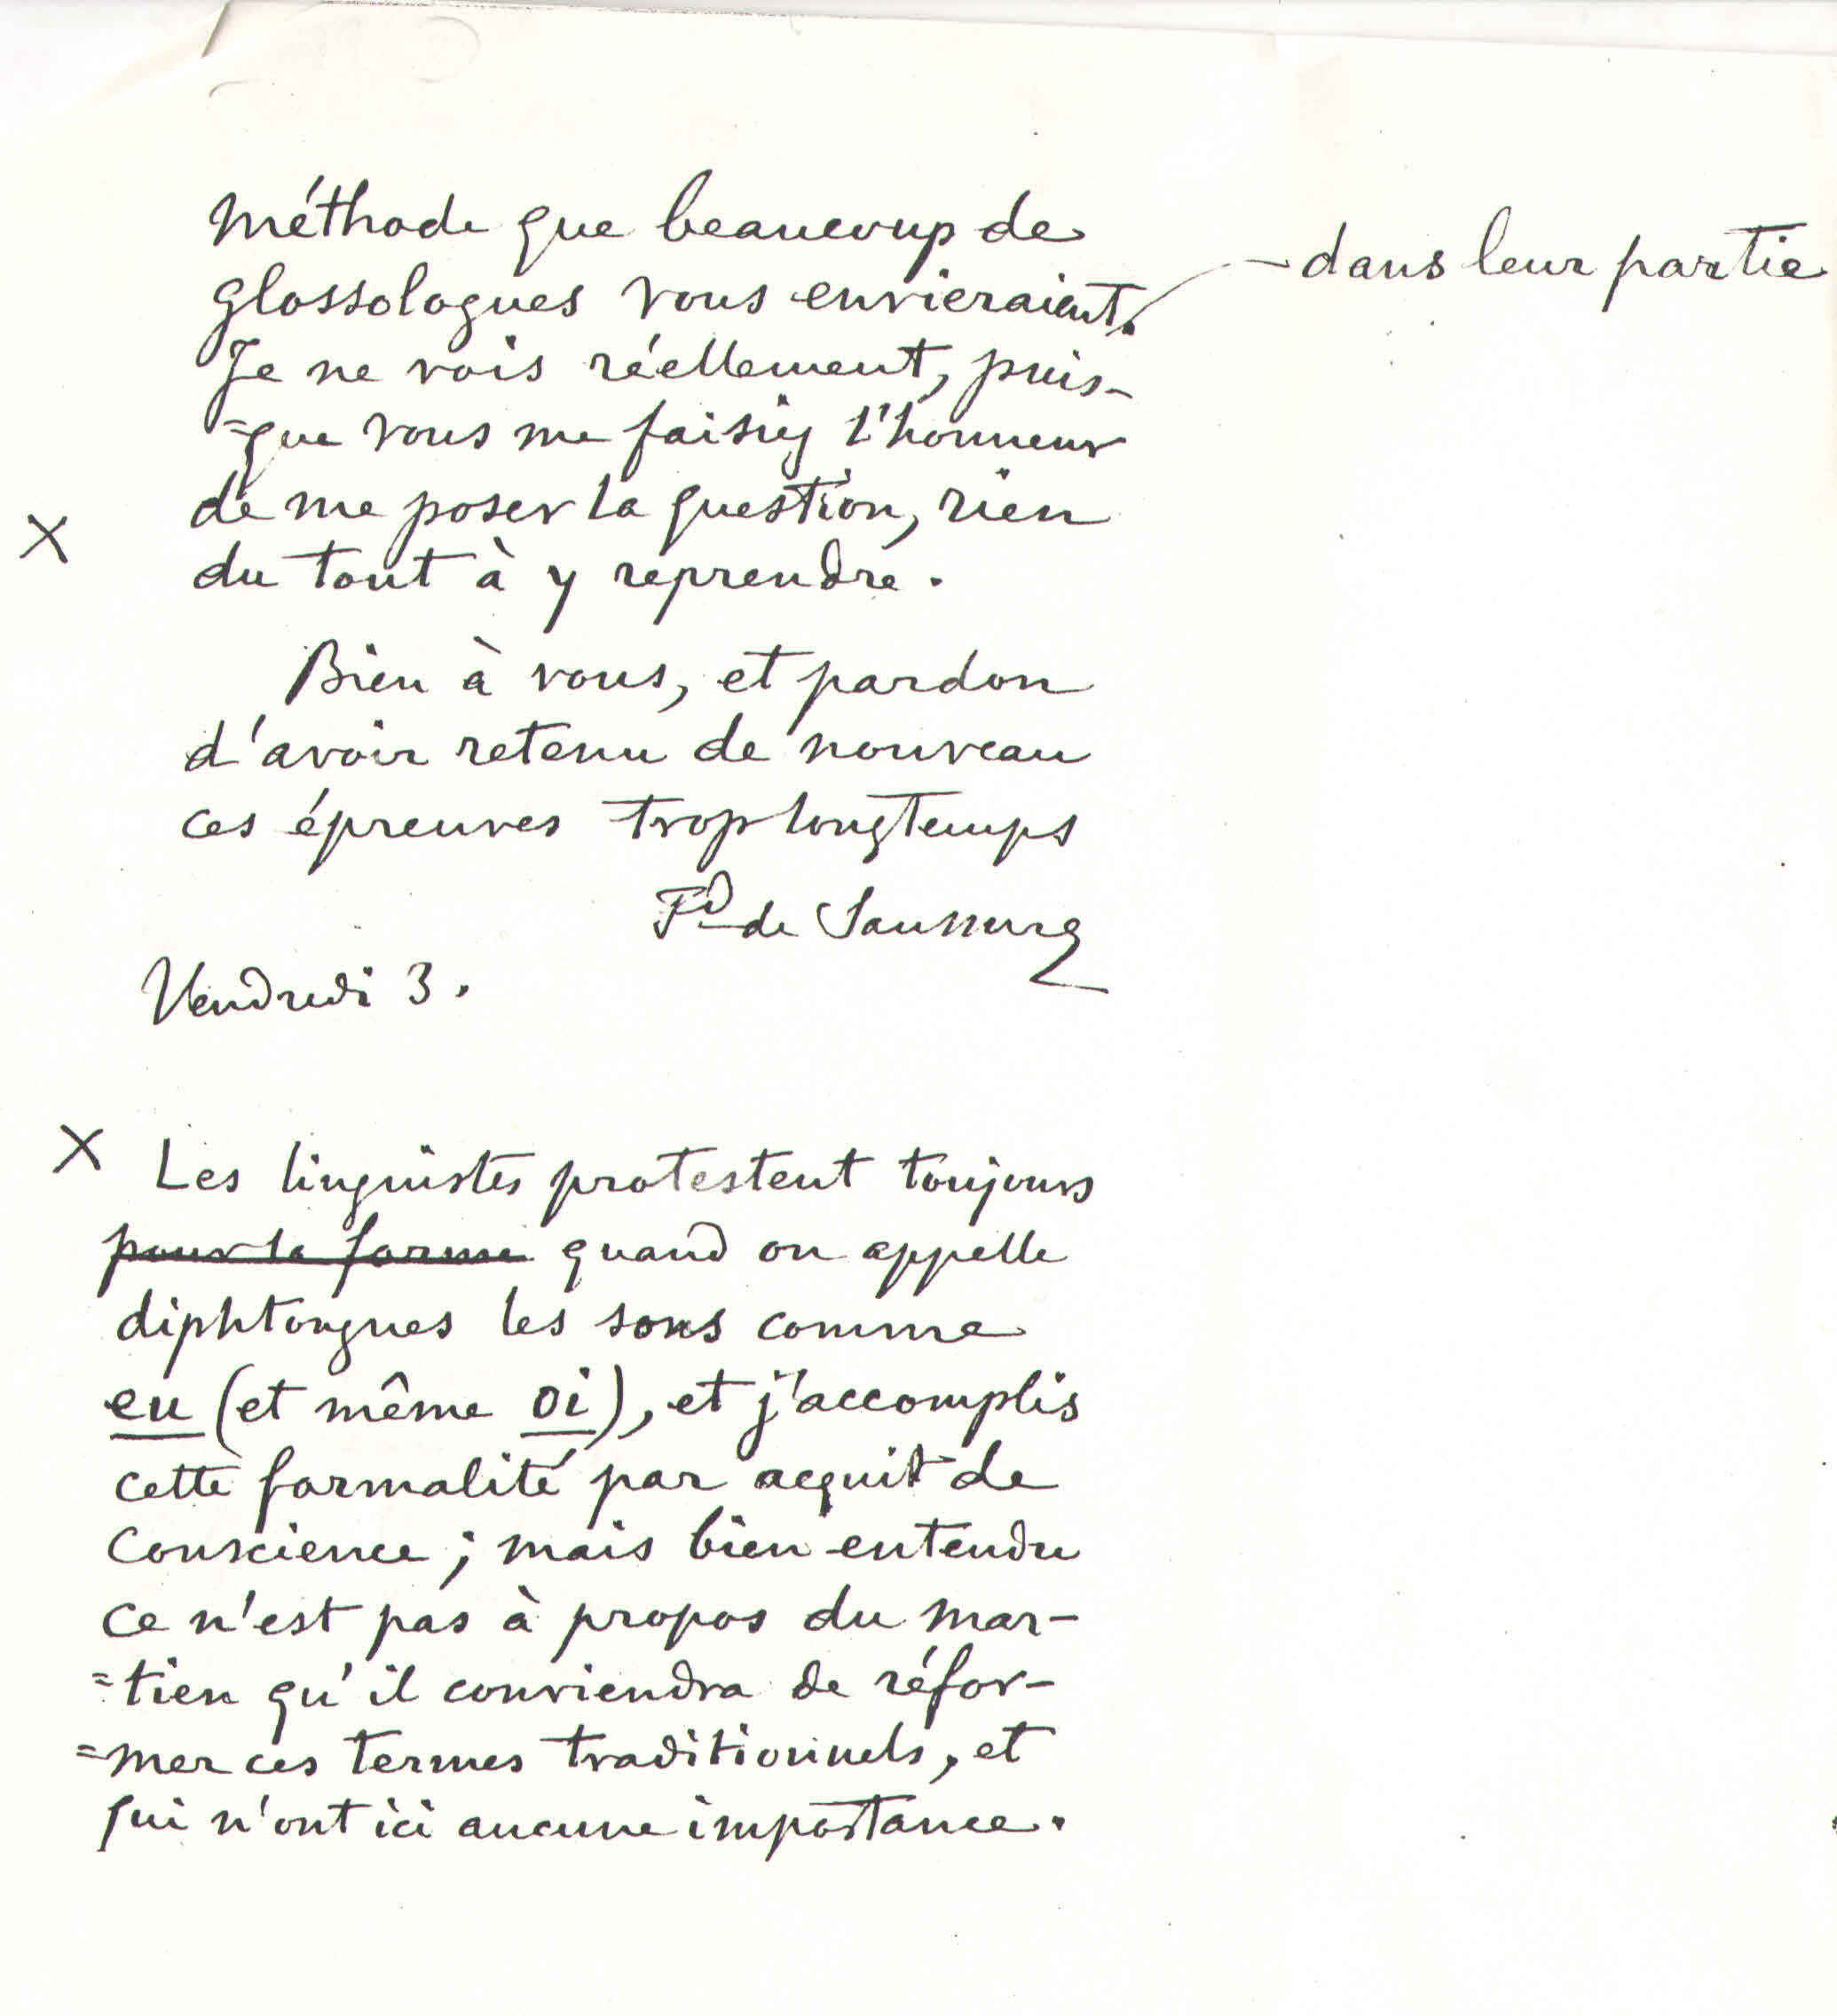 méthode que beaucoup de
glossologues vous envieraient.
- dans leur partie
Je ne vois réellement, puis-
=que vous me faisiez l'honneur
X de me poser la question, rien
du tout à y reprendre.
Bien à vous, et pardon
d'avoir retenu de nouveau
ces épreuves trop longtemps
Fd de Saussure
Vendredi 3.
X Les linguistes protestent toujours
pour la forme quand on appelle
diphtongues les sons comme
eu (et même oi), et j'accomplis
cette formalité par acquit de
conscience; mais bien entendu
ce n'est pas à propos du mar-
=tien qu'il conviendra de réfor-
=mer ces termes traditionnels, et
qui n'ont ici aucune importance.